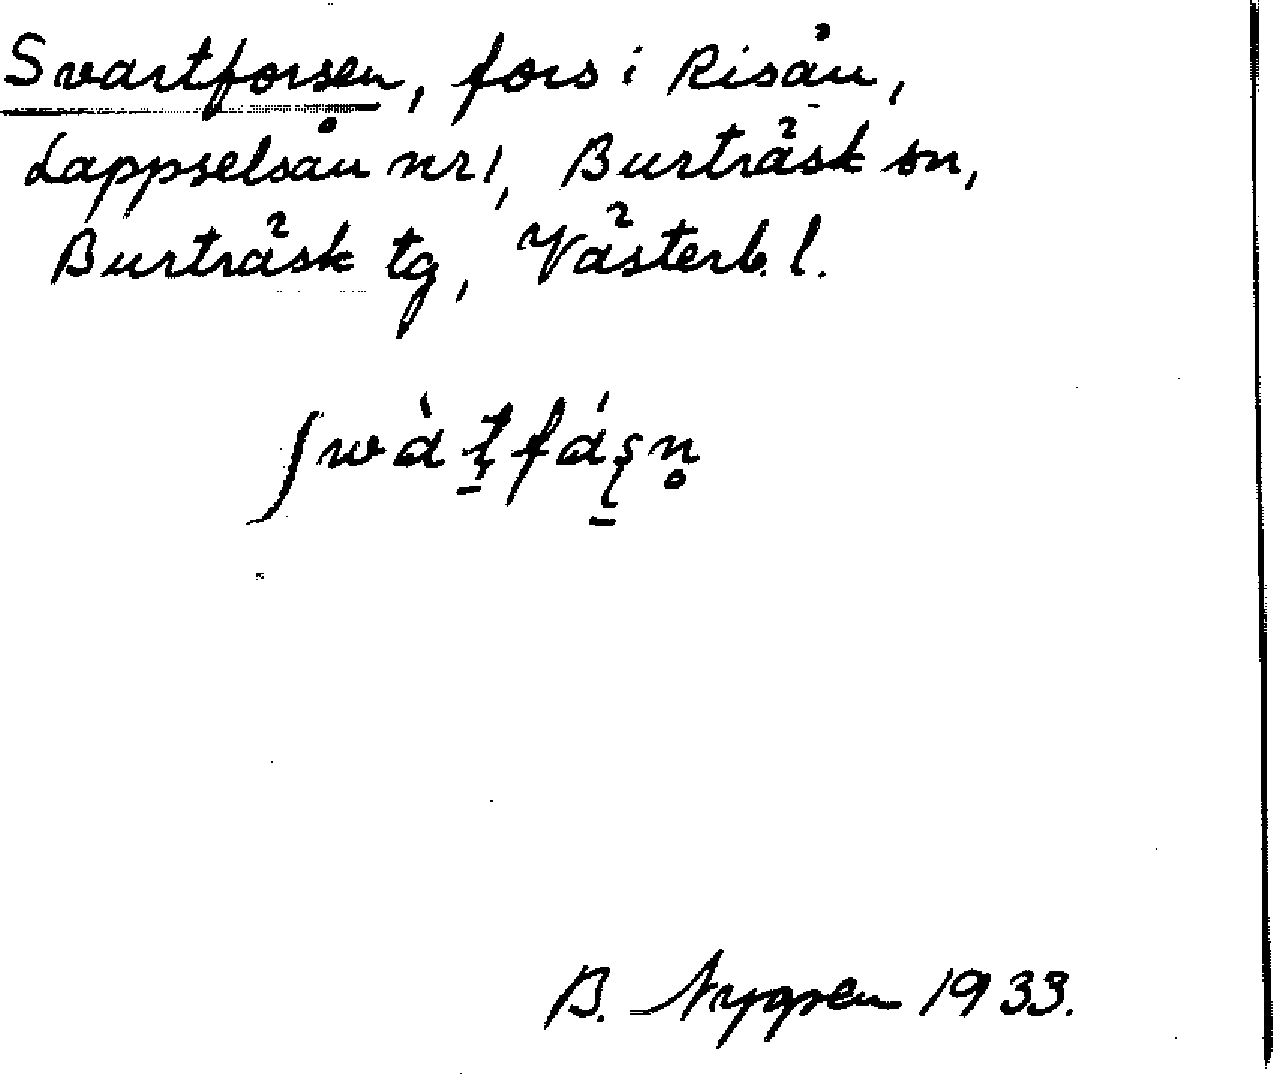 Svartforsen, fors i Risån,
Lappselsån nr 1, Burträsk sn,
Burträsk tg, Västerb. l.
ʃwàṯfáṣn̥
B. Nygren 1933.